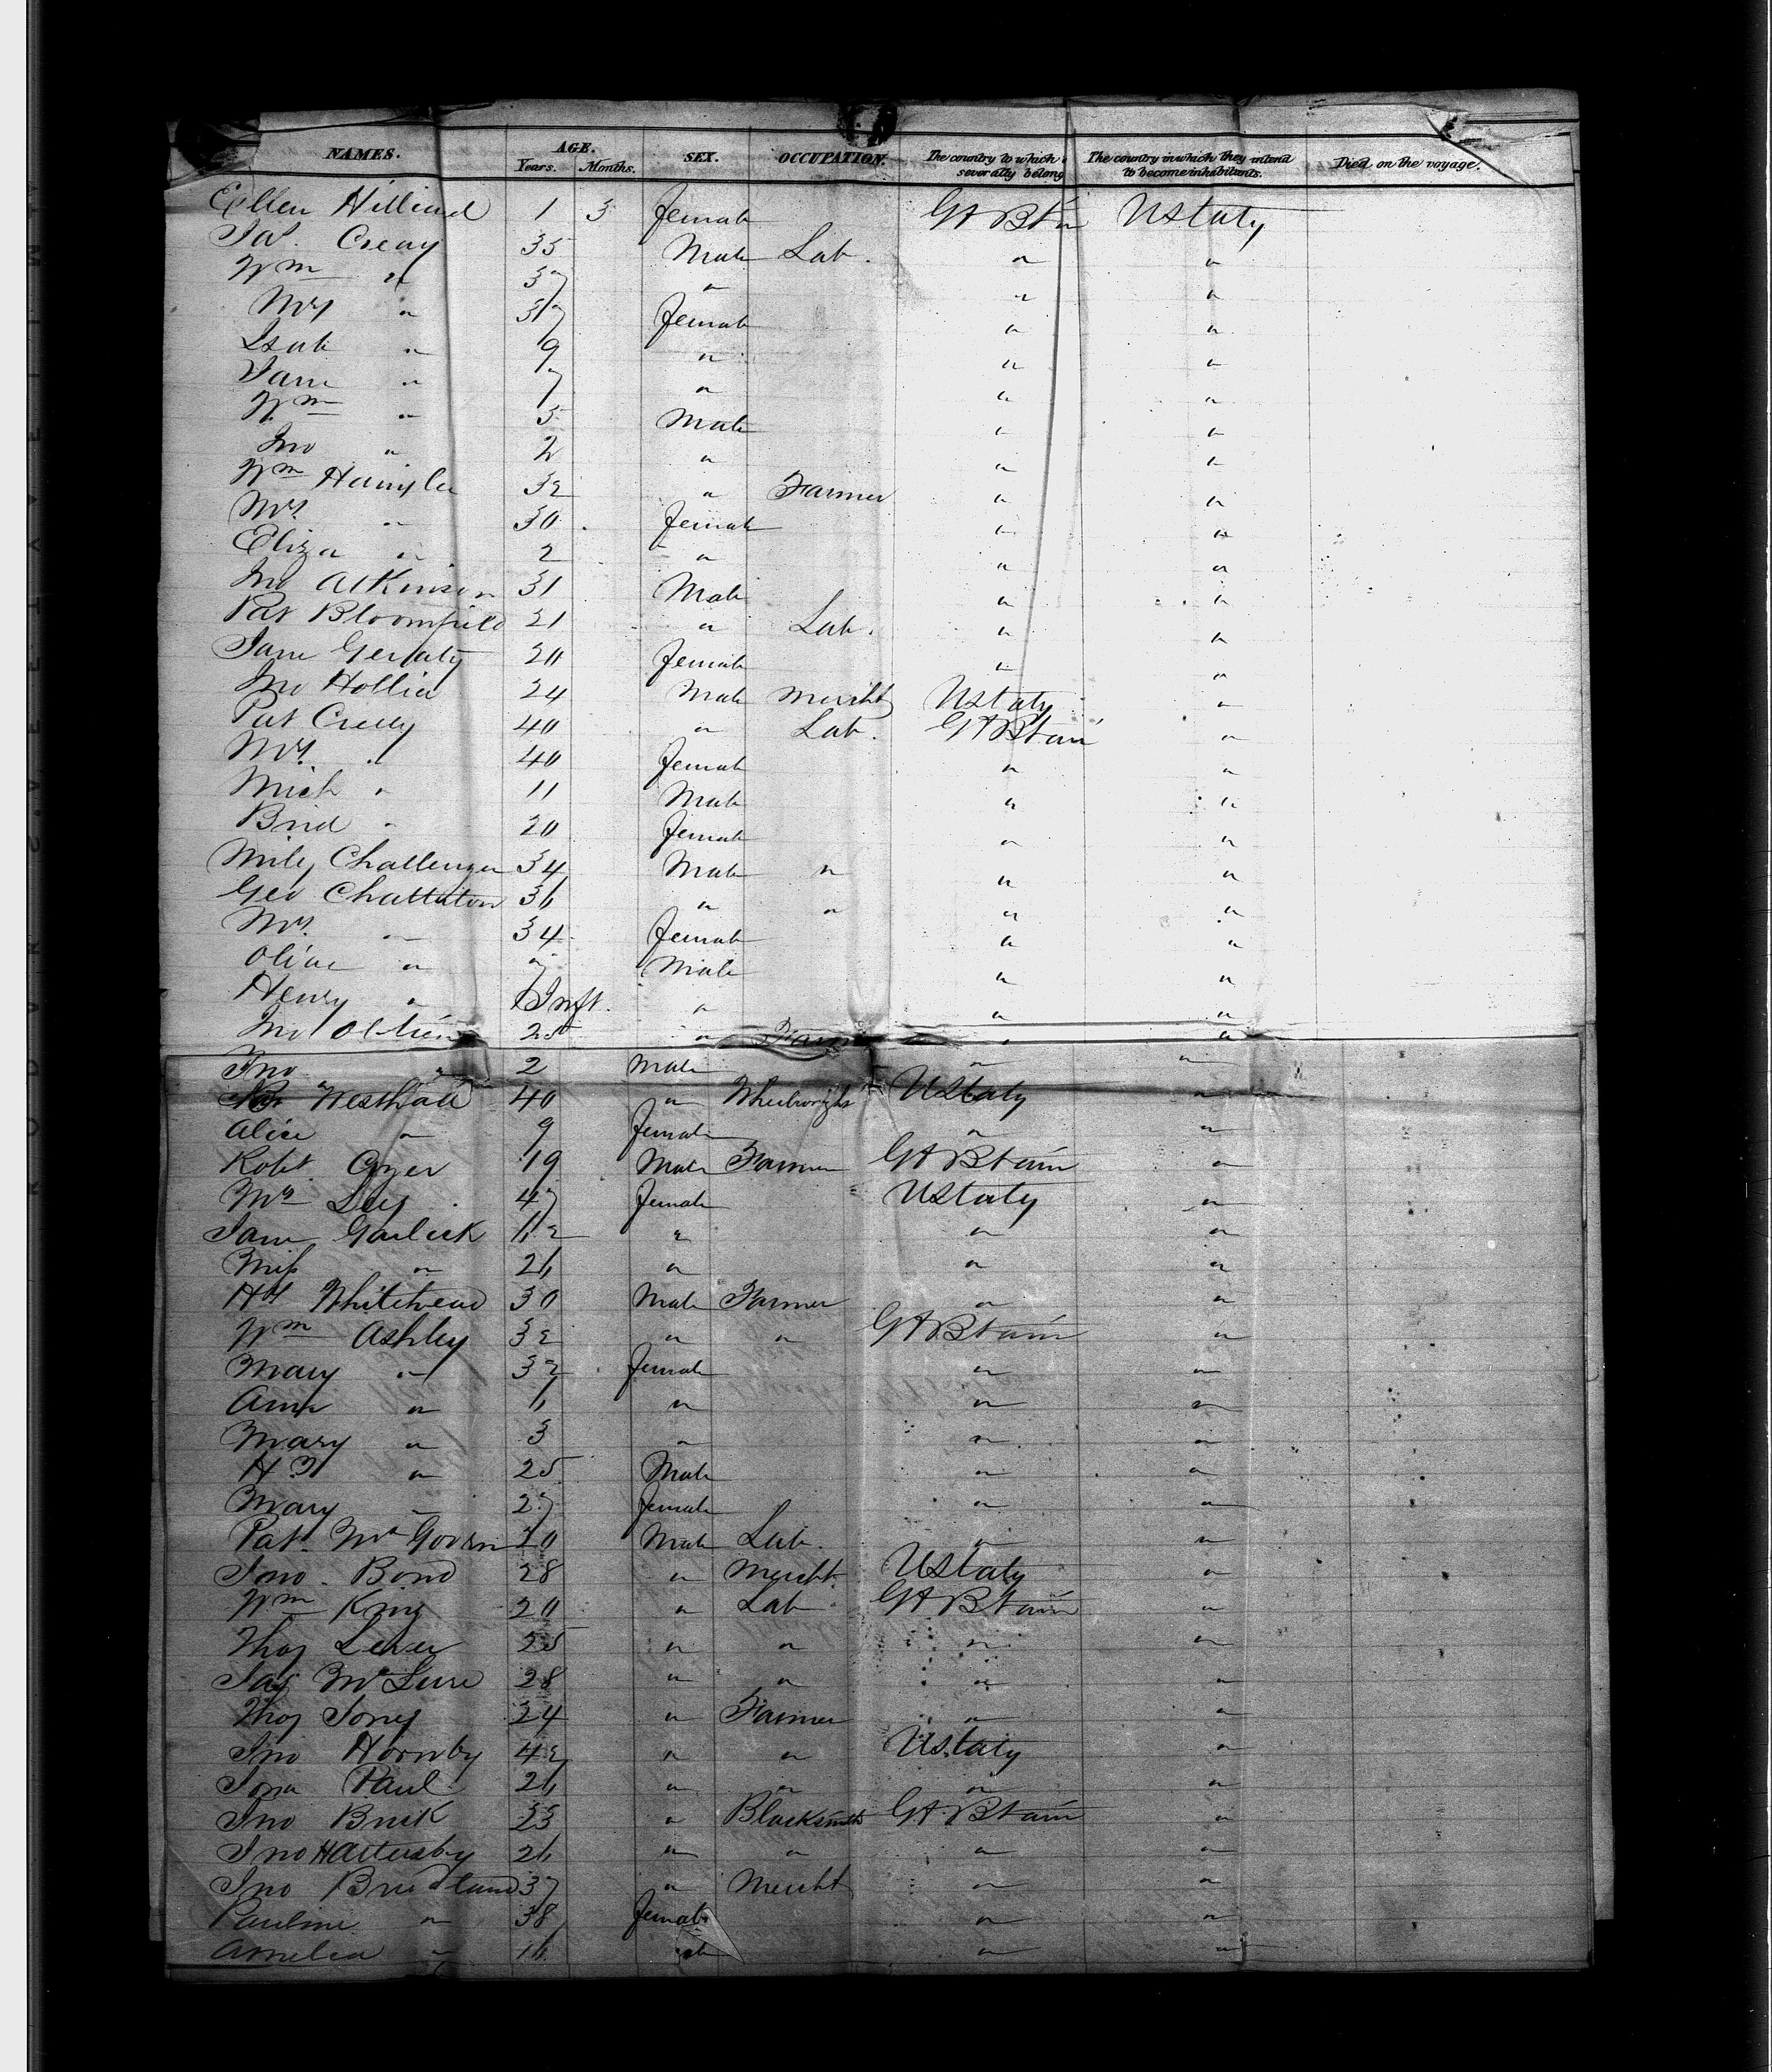 NAMES. AGE. Years. Months. SEX. OCCUPATION. The country to which severally belong The country in which they intend to become inhabitants. Died on the voyage.
Ellen Hilliard 1 3 Female Gt Btn UStates
Jas. Creay 35 Male Lab. " "
Wm " 37 " " "
Mrs " 37 Female " "
Isab " 9 " " "
Jane " 7 " " "
Wm " 5 Male " "
Jno " 2 " " "
Wm 32 " Farmer " "
Mrs " 30 Female " "
Eliza " 2 " " "
Jno Atkinson 31 Male " "
Pat Bloomfield 21 " Lab. " "
Jane Geraty 20 Female " "
Jno 24 Male Mercht UStates "
Pat Creey 40 " Lab. Gt Btain "
Mrs. " 40 Female " "
Mich " 11 Male " "
Brid " 20 Female " "
Miles Challenger 34 Male " " "
Geo Chatterton 36 " " " "
Mrs. " 34 Female " "
Olive " Male " "
Henry " Inft. " " "
Jno 25 " Farm " "
Jno " 2 Male " "
Westhall 40 " Wheelwright UStates "
Alice " 9 Female " "
Robt. 19 Male Farmer Gt Btain "
Mrs 47 Female UStates "
Jane Garlick 62 " " "
Miss " 26 " " "
Hy Whitehead 30 Male Farmer " "
Wm Ashley 32 " " Gt Btain "
Mary " 32 Female " "
Ann " 6 " " "
Mary " 3 " " "
Hy " 25 Male " "
Mary " 27 Female " "
Pat. McGovern 20 Male Lab. " "
Jno. Bond 28 " Mercht. UStates "
Wm King 20 " Lab Gt Btain "
Thos Lever 25 " " " "
Jas McLure 28 " " " "
Thos Jones 24 " Farmer " "
Jno Hornby 42 " " UStates "
Jona Paul 26 " " " "
Jno Brick 23 " Blacksmith Gt Btain "
Jno Hattersby 26 " " " "
Jno 37 " Mercht " "
Pauline " 38 Female " "
Amelia " 16 " "